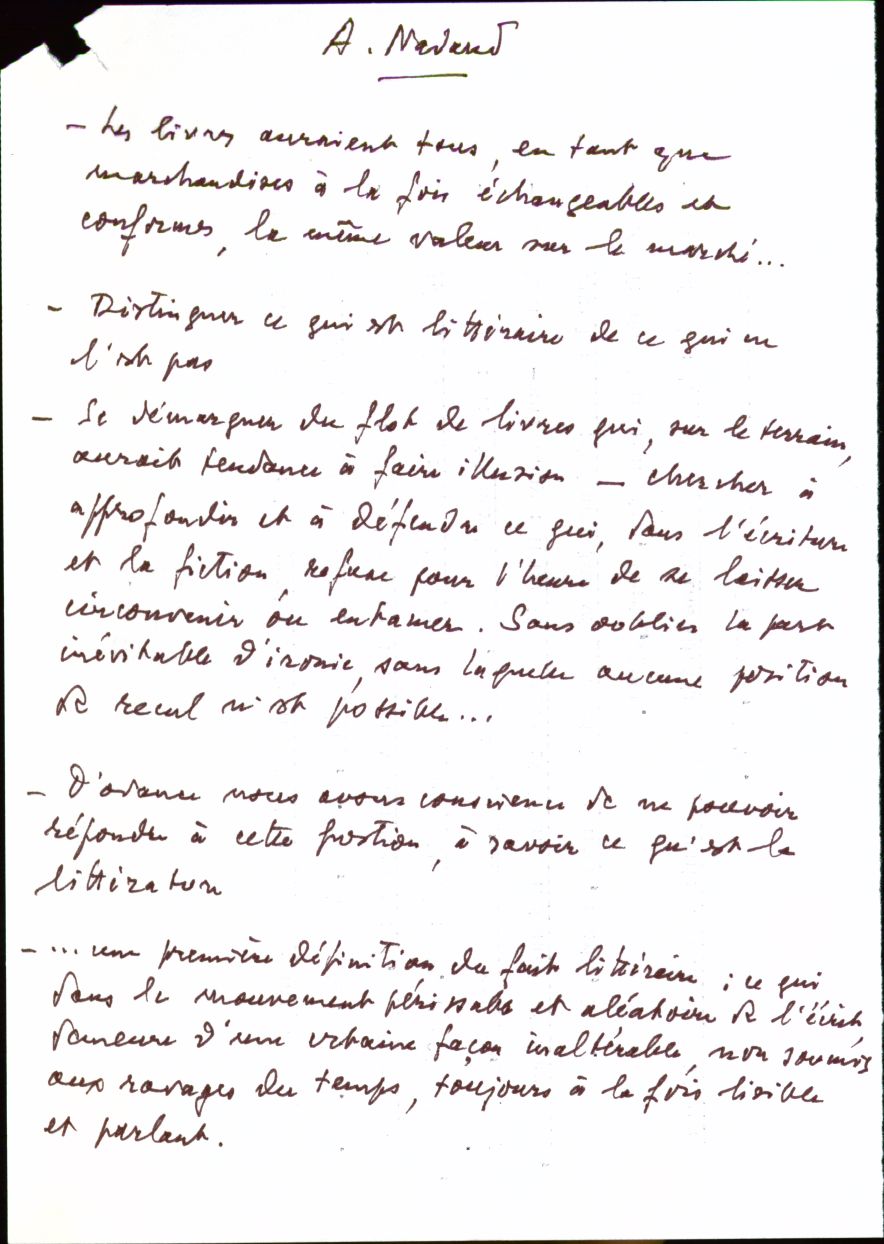 A. Nadaud
- Les livres auraient tous, en tant que
marchandises à la fois échangeables et
conformes, la même valeur sur le marché...
- Distinguer ce qui est littéraire de ce qui ne
l'est pas
- Se démarquer du flot de livres qui, sur le terrain,
aurait tendance à faire illusion — chercher à
approfondir et à défendre ce qui, dans l'écriture
et la fiction, refuse pour l'heure de se laisser
circonvenir ou entamer. Sans oublier la part
inévitable d'ironie, sans laquelle aucune position
de recul n'est possible...
- D'avance nous avons conscience de ne pouvoir
répondre à cette question, à savoir ce qu'est la
littérature
- ... une première définition du fait littéraire : ce qui
dans le mouvement périssable et aléatoire de l'écrit,
demeure d'une certaine façon inaltérable, non soumis
aux ravages du temps, toujours à la fois lisible
et parlant.